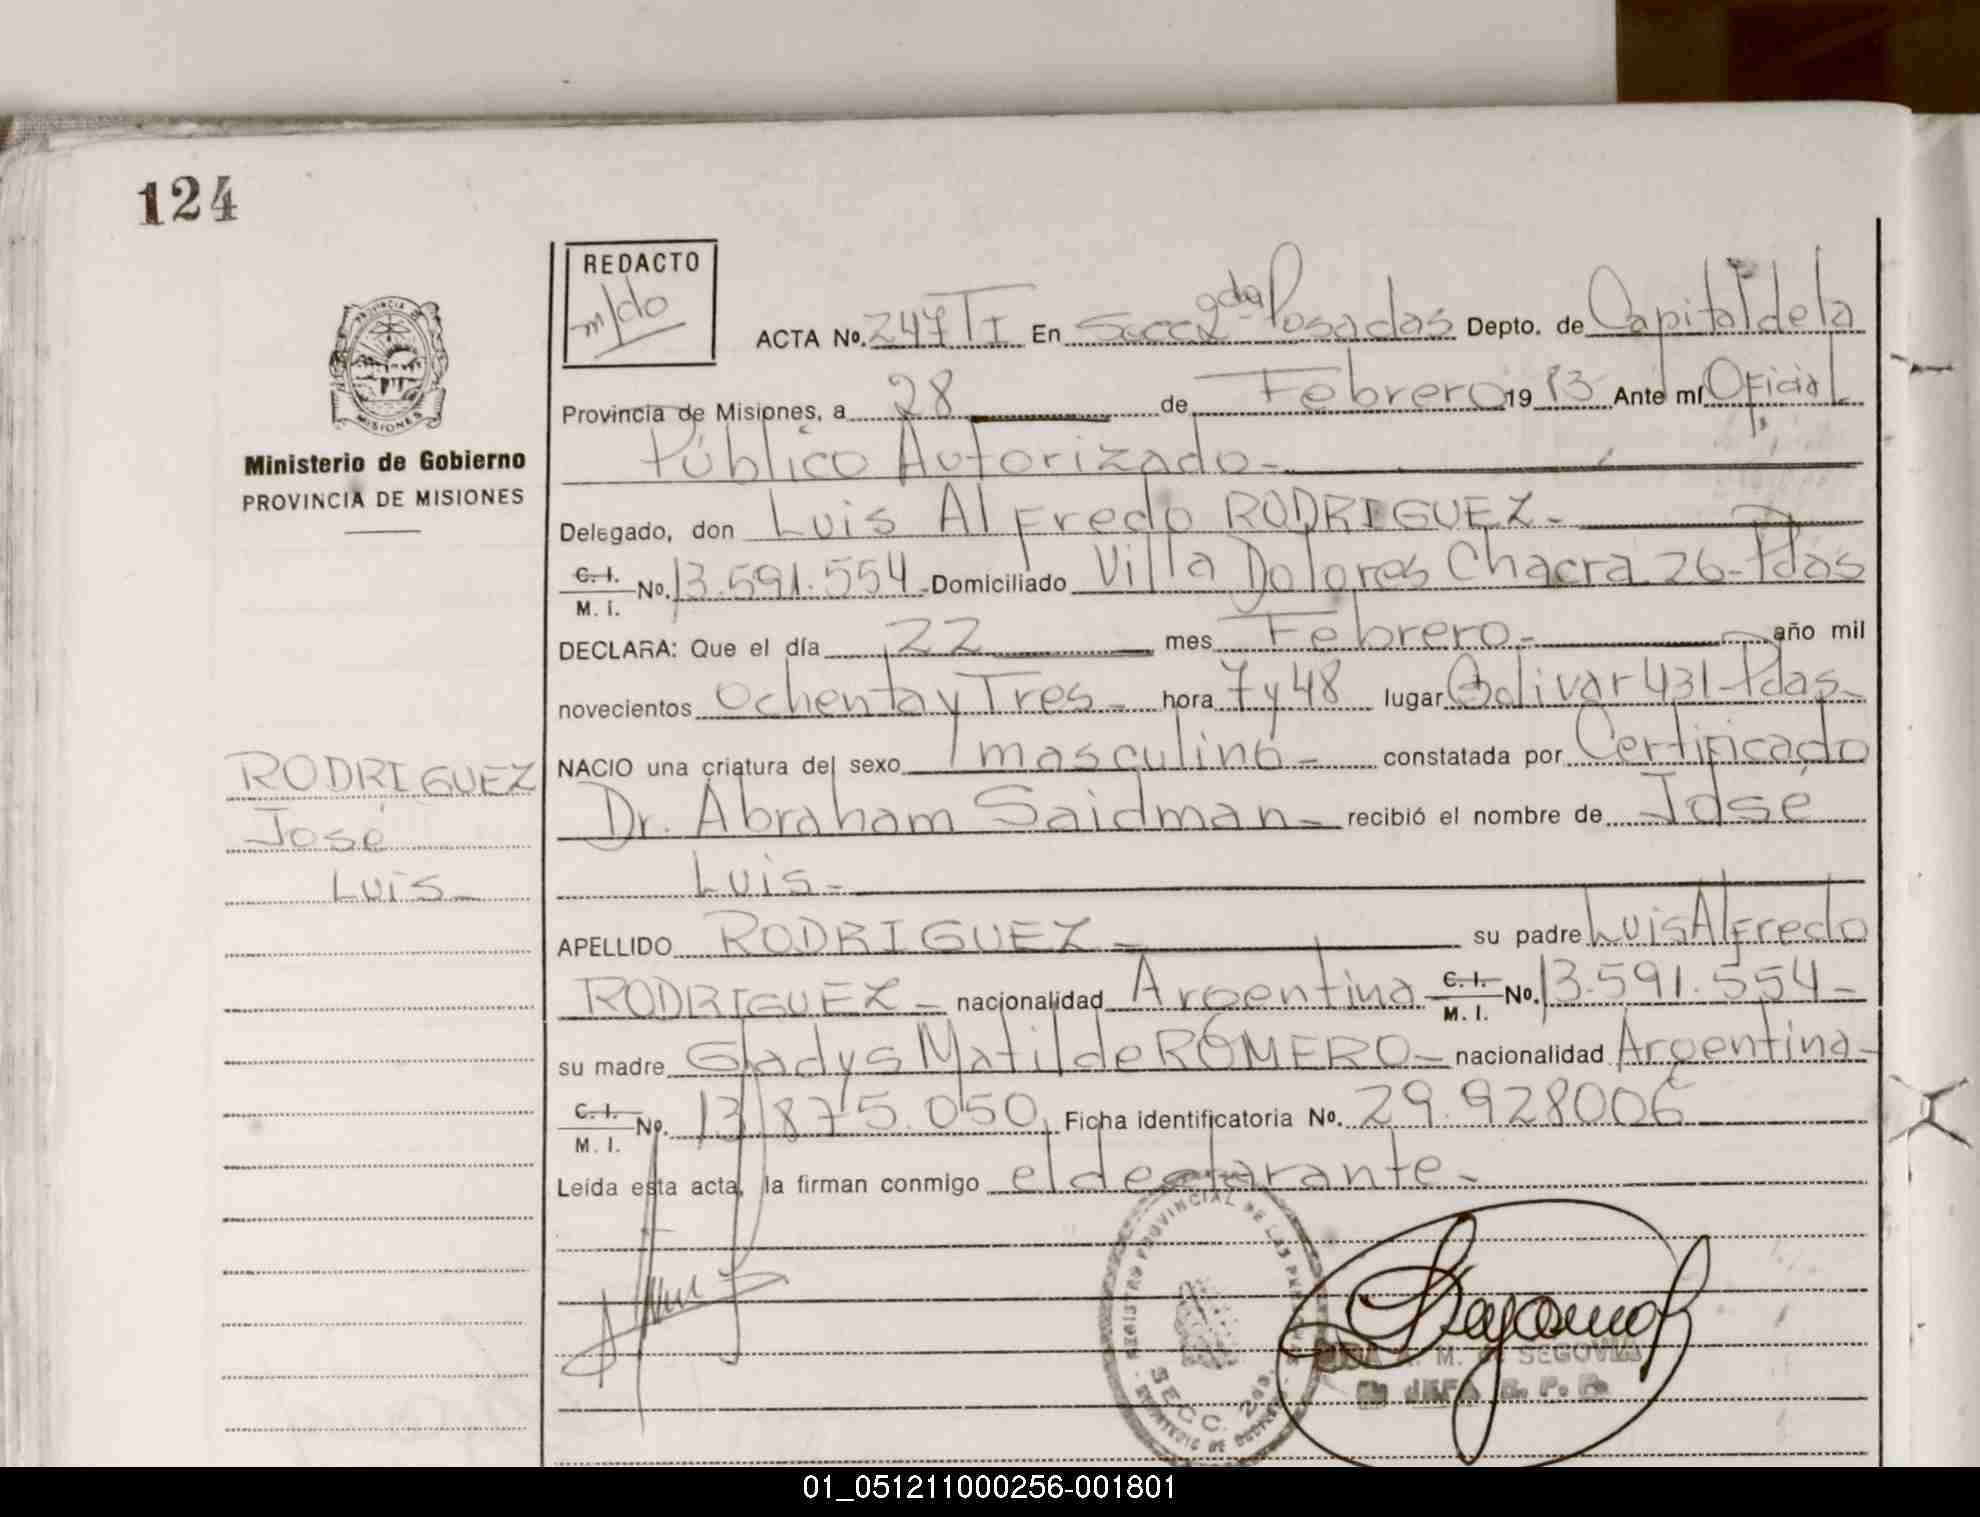 124
REDACTO
ACTA Nº. 247 TI En Secc 2da Posadas Depto. de Capital de la
Provincia de Misiones, a 28 de Febrero 1983 Ante mí Oficial
Público Autorizado-
Ministerio de Gobierno
PROVINCIA DE MISIONES
Delegado, don Luis Alfredo RODRIGUEZ-
C. I. M. I. Nº. 13.591.554 - Domiciliado Villa Dolores Chacra 26-Pdas
DECLARA: Que el día 22 mes Febrero- año mil
novecientos ochenta y Tres- hora 7 y 48 lugar Bolivar 431-Pdas-
NACIO una criatura del sexo masculino- constatada por Certificado
Dr. Abraham Saidman- recibió el nombre de José
Luis-
RODRIGUEZ
José
Luis-
APELLIDO RODRIGUEZ- su padre Luis Alfredo
RODRIGUEZ- nacionalidad Argentina C. I. M. I. Nº. 13.591.554-
su madre Gladys Matilde ROMERO- nacionalidad Argentina-
C. I. M. I. Nº. 13.875.050 Ficha identificatoria Nº. 29.928006
Leída esta acta, la firman conmigo el declarante-
REGISTRO PROVINCIAL DE LAS
SECC. 2da.
M. SEGOVIA
JEFA R. P. P.
01_051211000256-001801